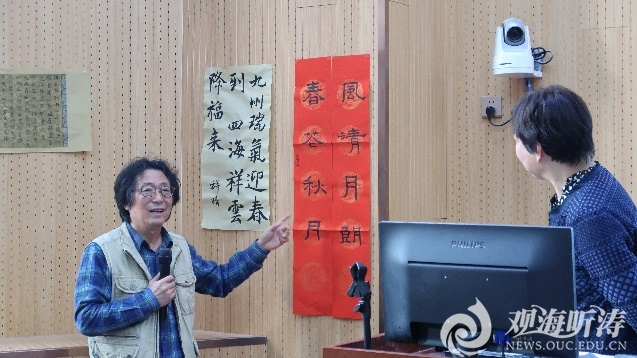 九州瑞氣迎春
到四海祥雲
降福来
風清月朗
春花秋月
PHILIPS
观海听涛
NEWS.OUC.EDU.CN